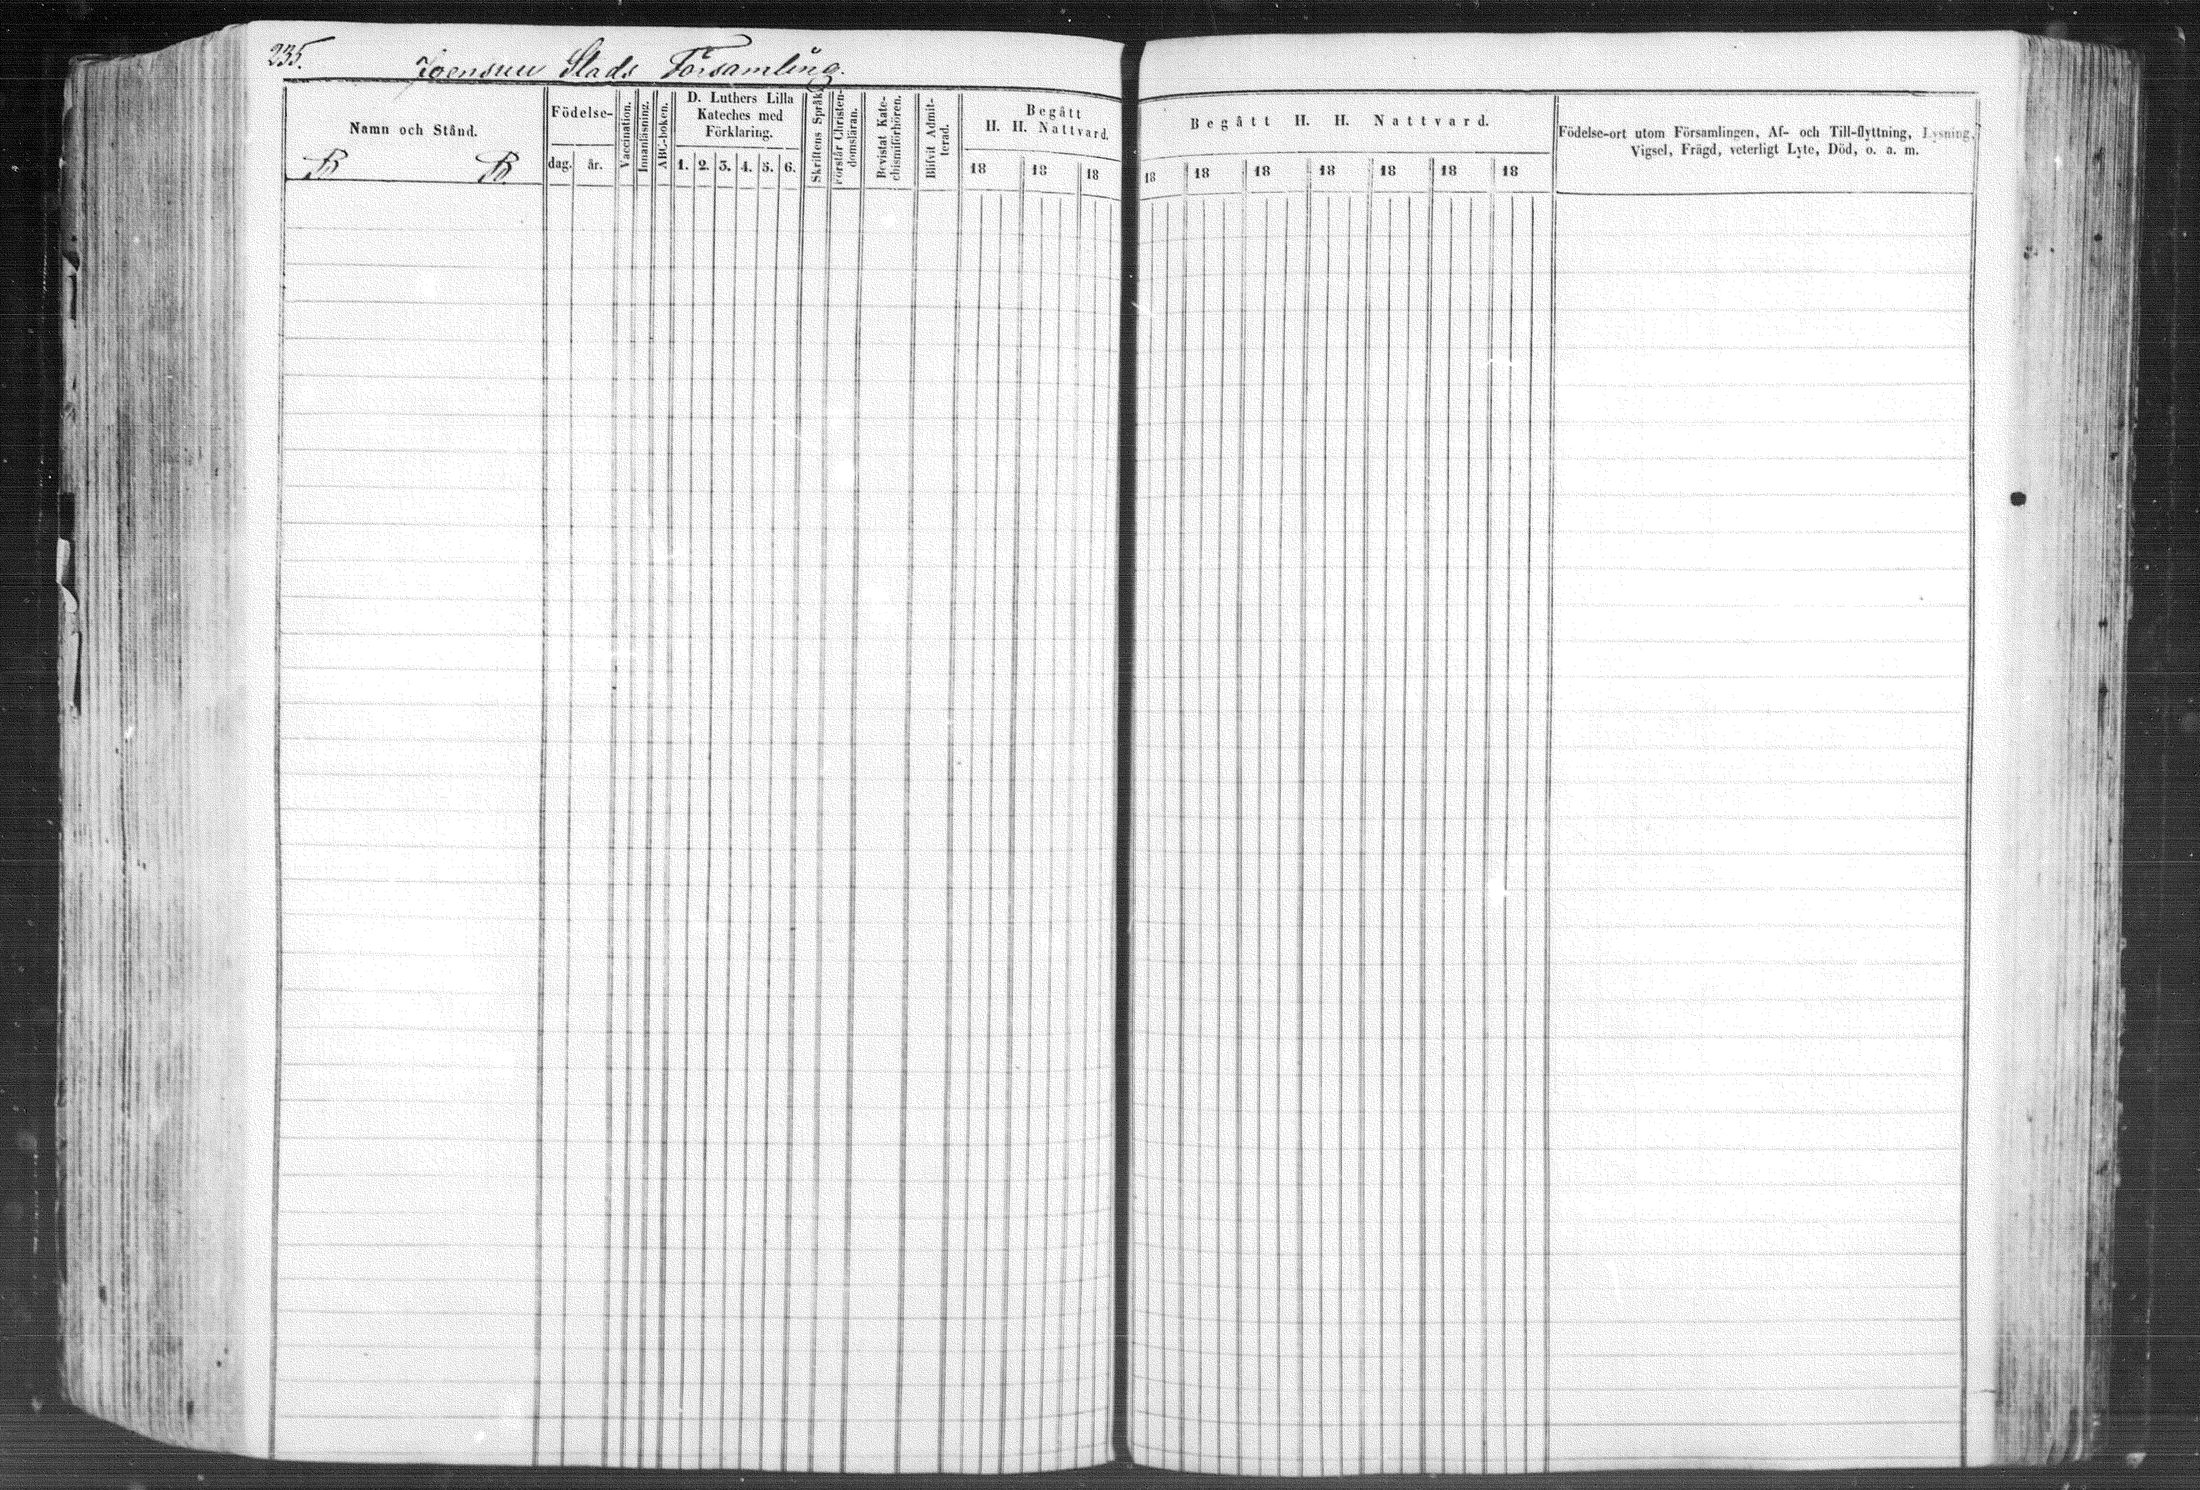 235.
Joensuu Stads Församling.
Namn och Stånd.
B B
Födelse-
dag. år.
Vaccination.
Innanläsning.
ABC-boken.
D. Luthers Lilla
Kateches med
Förklaring.
1. 2. 3. 4. 5. 6.
Skriftens Språk.
Förstår Christen-
domsläran.
Bevistat Kate-
chismiförhören.
Blifvit Admit-
terad.
Begått
H. H. Nattvard.
18 18 18
Begått H. H. Nattvard.
18 18 18 18 18 18 18
Födelse-ort utom Församlingen, Af- och Till-flyttning, Lysning,
Vigsel, Frägd, veterligt Lyte, Död, o. a. m.